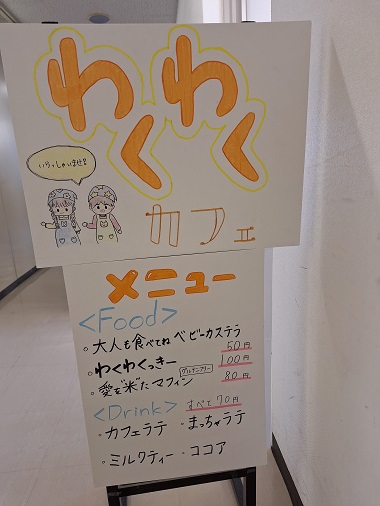 わくわく
カフェ
いらっしゃいませ!
メニュー
<Food>
。大人も食べてね ベビーカステラ 50円
。わくわくっきー 100円
。愛を"米"たマフィン グルテンフリー 80円
<Drink> すべて70円
・カフェラテ ・まっちゃラテ
・ミルクティー ・ココア